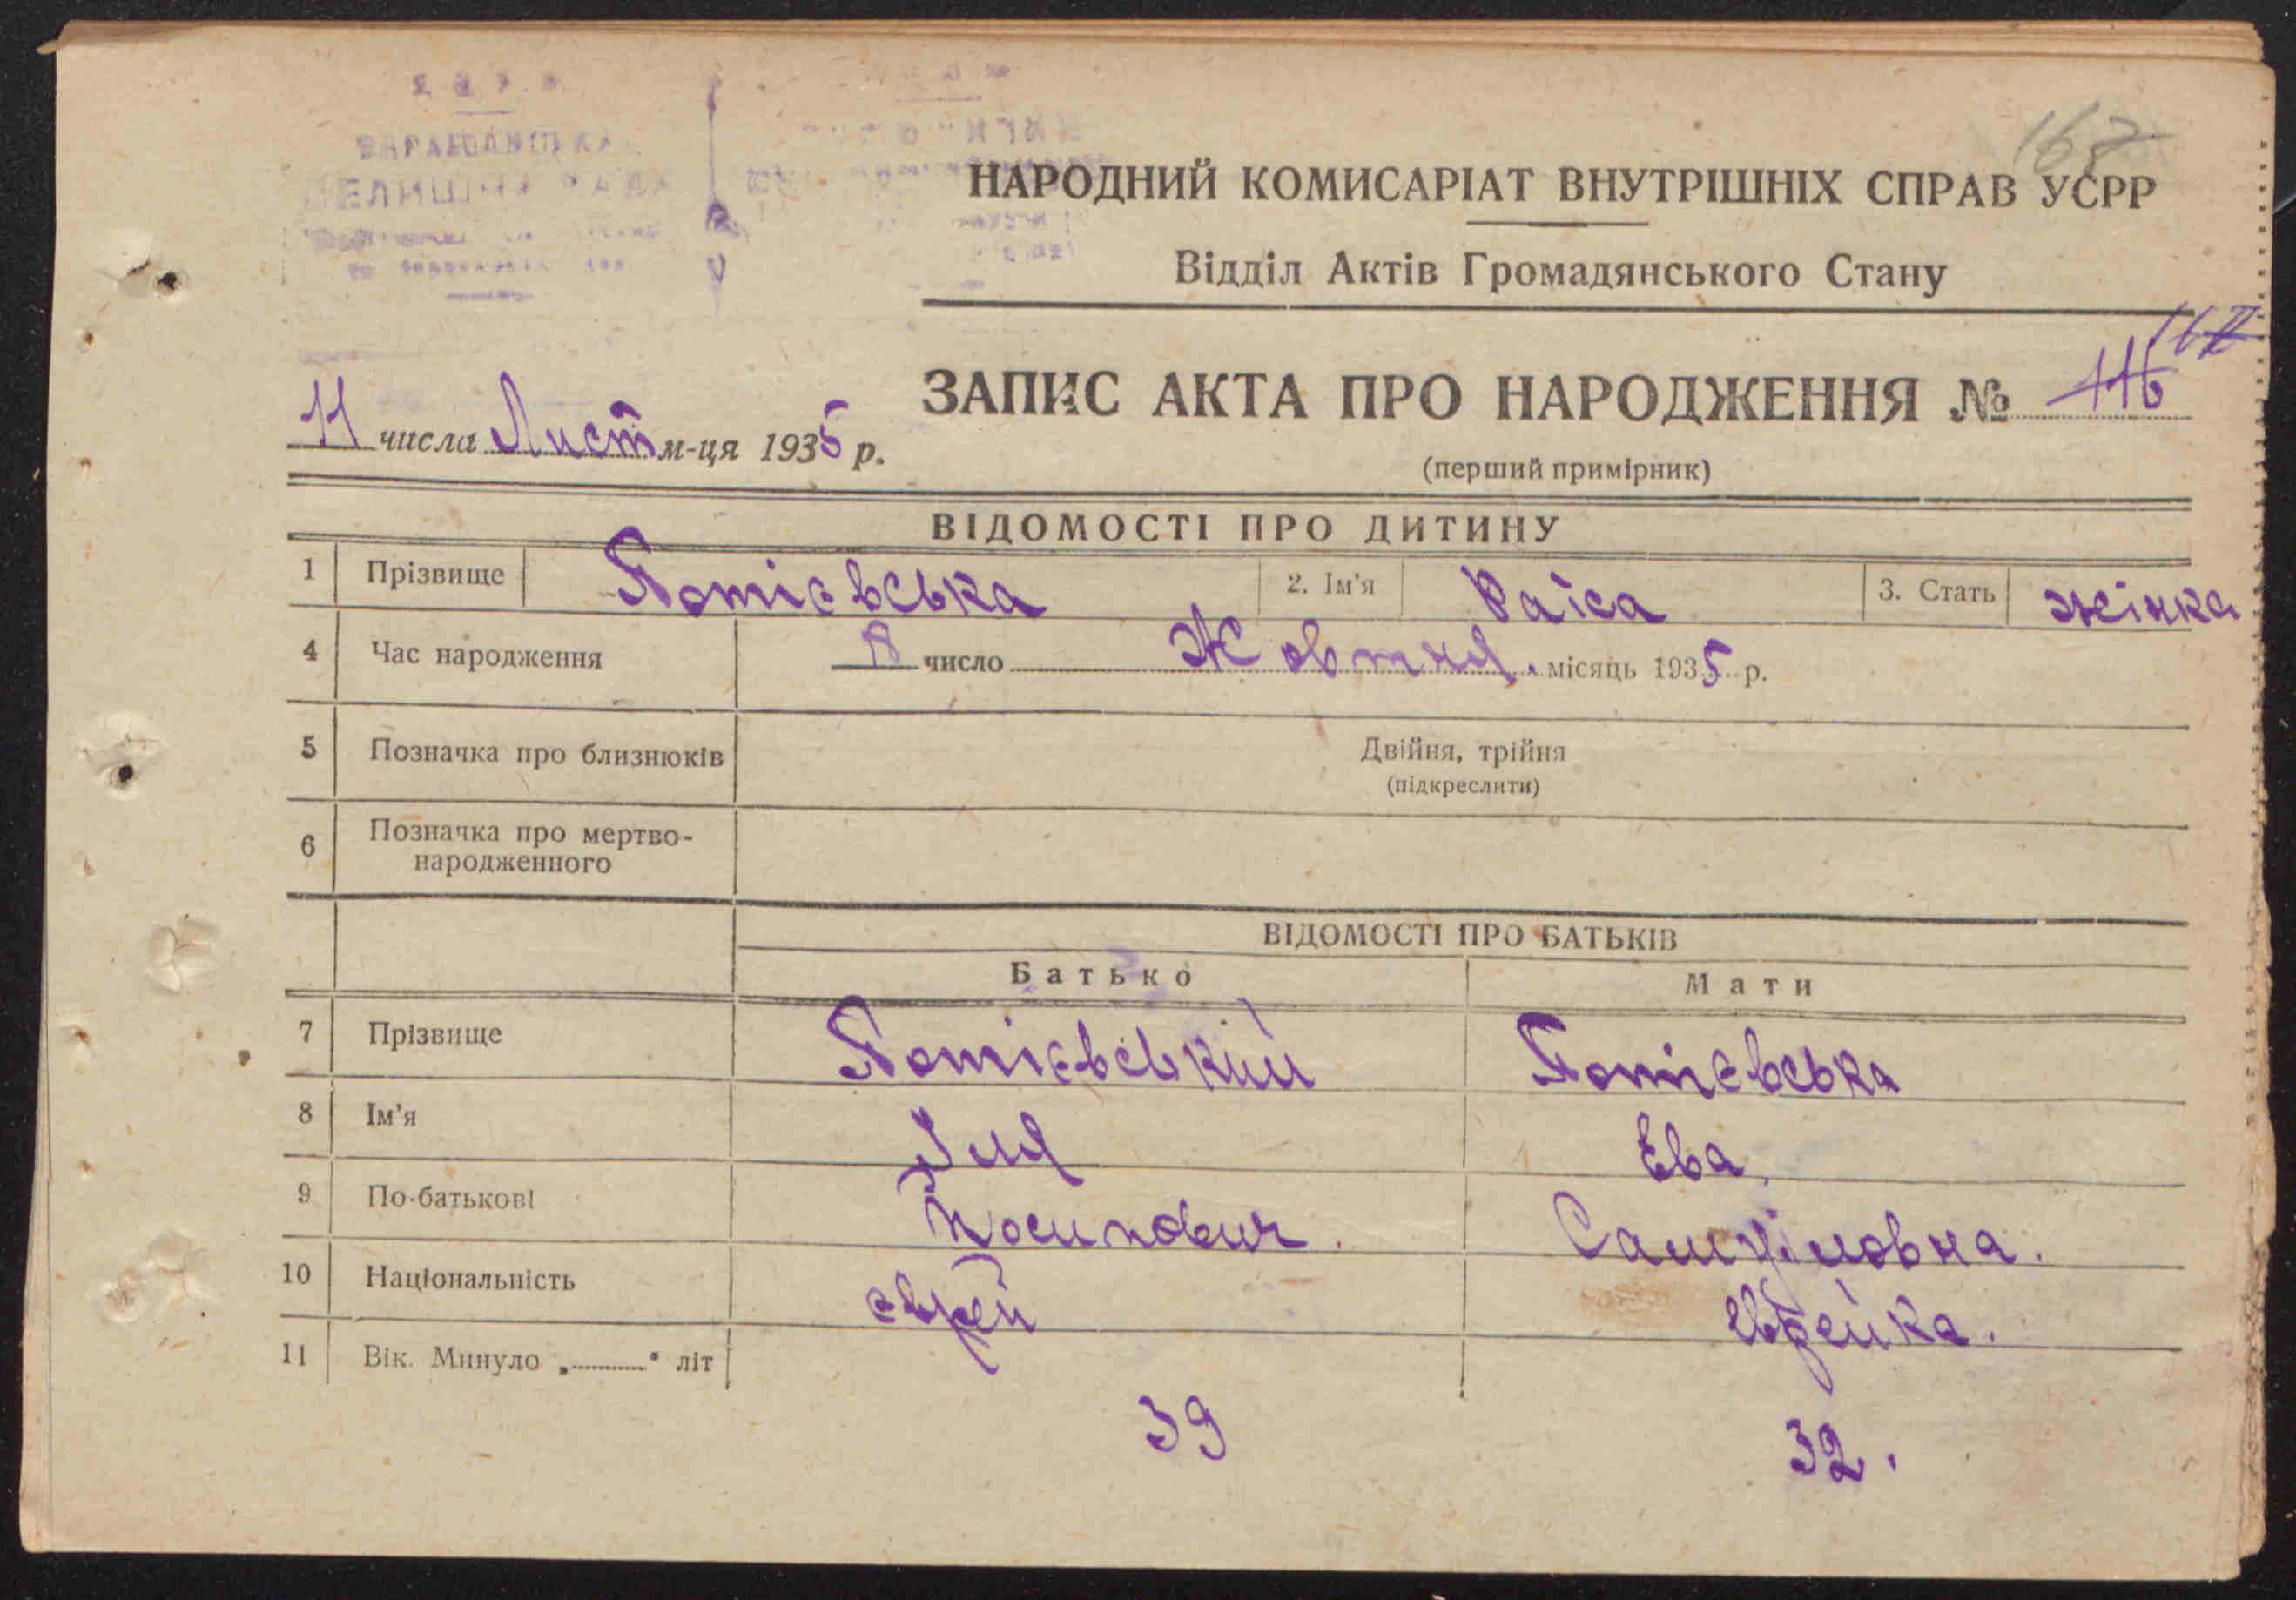 НАРОДНИЙ КОМИСАРІАТ ВНУТРІШНІХ СПРАВ УСРР
Відділ Актів Громадянського Стану
ЗАПИС АКТА ПРО НАРОДЖЕННЯ № 116
11 числа Лист м-ця 1935 р.
(перший примірник)
ВІДОМОСТІ ПРО ДИТИНУ
1 Прізвище Потієвська 2. Ім'я Раїса 3. Стать жінка
4 Час народження 8 число Жовтня. місяць 1935 р.
5 Позначка про близнюків Двійня, трійня
(підкреслити)
6 Позначка про мертво-
народженного
ВІДОМОСТІ ПРО БАТЬКІВ
Батько Мати
7 Прізвище Потієвський Потієвська
8 Ім'я Ілля Ева.
9 По-батькові Йосипович. Самуіловна.
10 Національність єврей еврейка.
11 Вік. Минуло „..........“ літ
39 32.